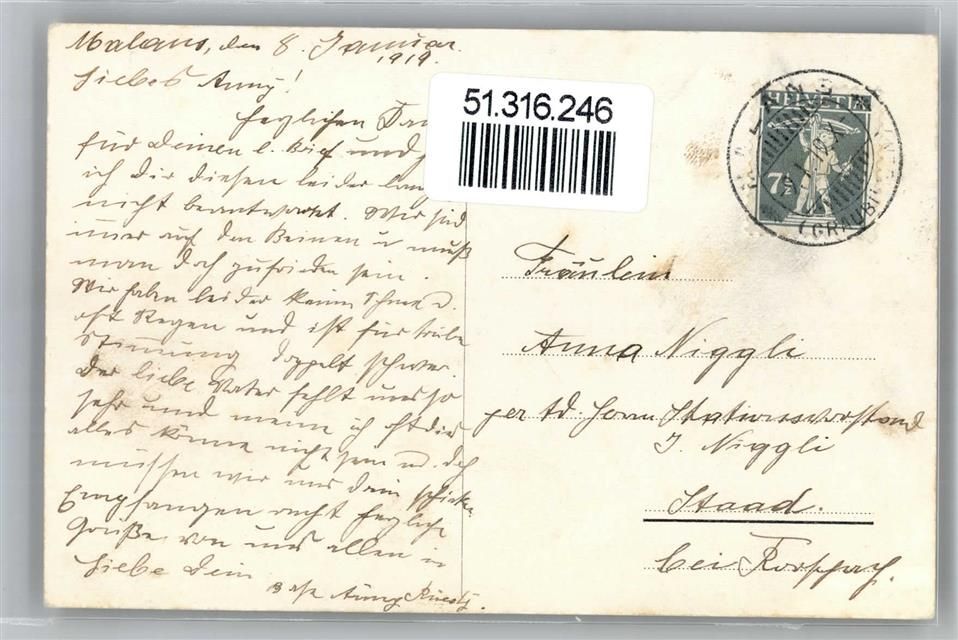 Malans, den 8. Januar
1919.
Liebes Anny!
Herzlichen Dan
für Deinen l. Brief und
ich Dir diesen leider lan
nicht beantwortet. Wir sind
immer auf den Beinen u muß
man doch zufrieden sein.
Wir haben leider keinen Schnee d.
oft Regen und ist für trübe
Stimmung doppelt schwer.
Der liebe Vater fehlt uns so
sehr und meine ich oft dies
alles könne nicht sein u. doch
müssen wir uns drein schicken
Empfangen recht herzliche
Grüße von uns allen in
Liebe Dein
Anny
51.316.246
HELVETIA
7½
MALANS
(GRAUB
Fräulein
Anna Niggli
per Ad. Herrn Stationsvorstand
J. Niggli
Staad.
bei Rorschach.